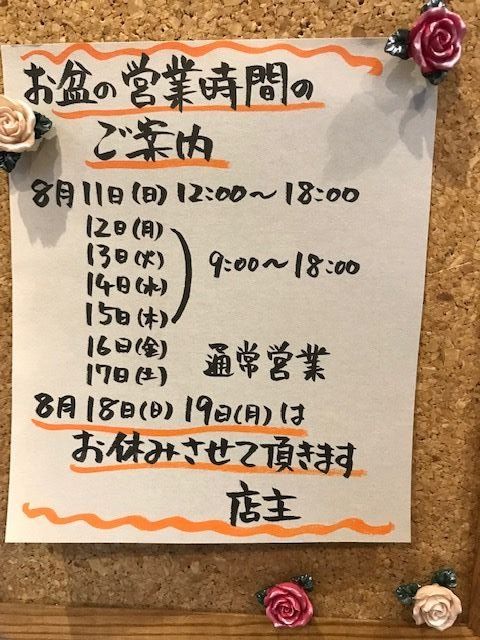 お盆の営業時間の
ご案内
8月11日(日) 12:00〜18:00
12日(月)
13日(火)
14日(水)
15日(木)
9:00〜18:00
16日(金)
17日(土)
通常営業
8月18日(日) 19日(月)は
お休みさせて頂きます
店主